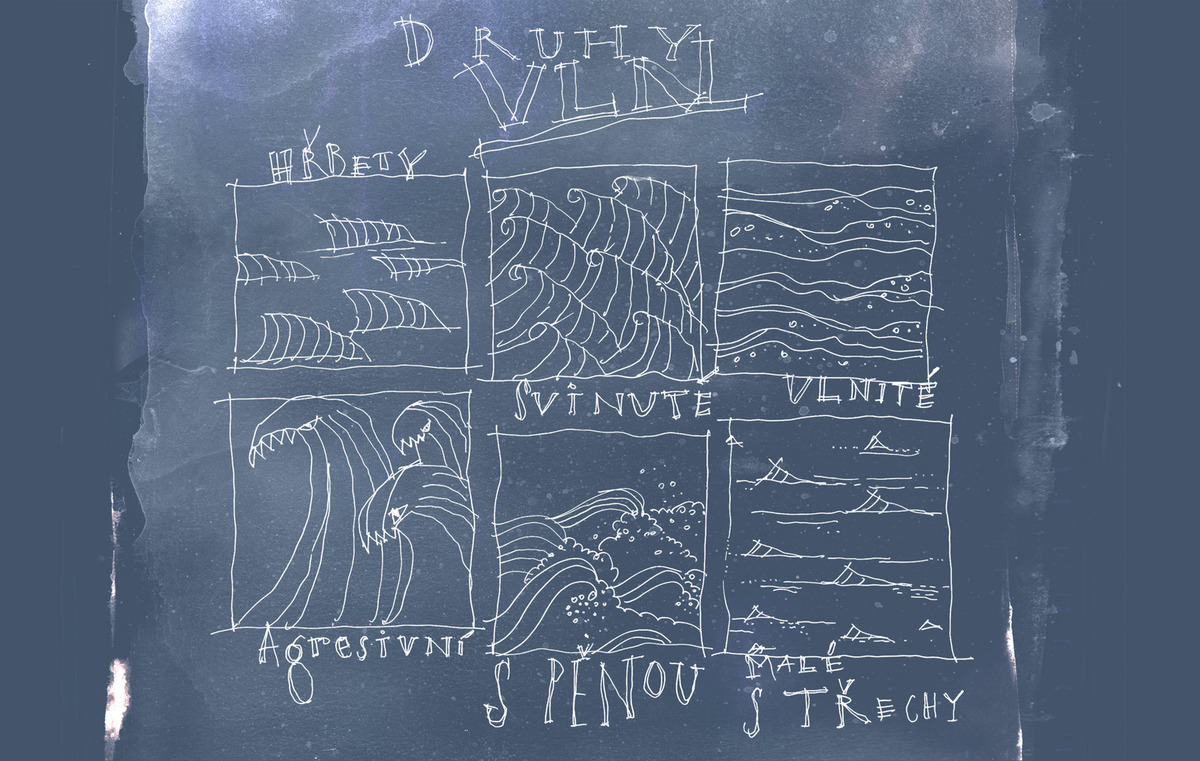 DRUHY
VLN
HŘBETY
SVINUTÉ
VLNITÉ
Agresivní
S PĚNOU
MALÉ
STŘECHY